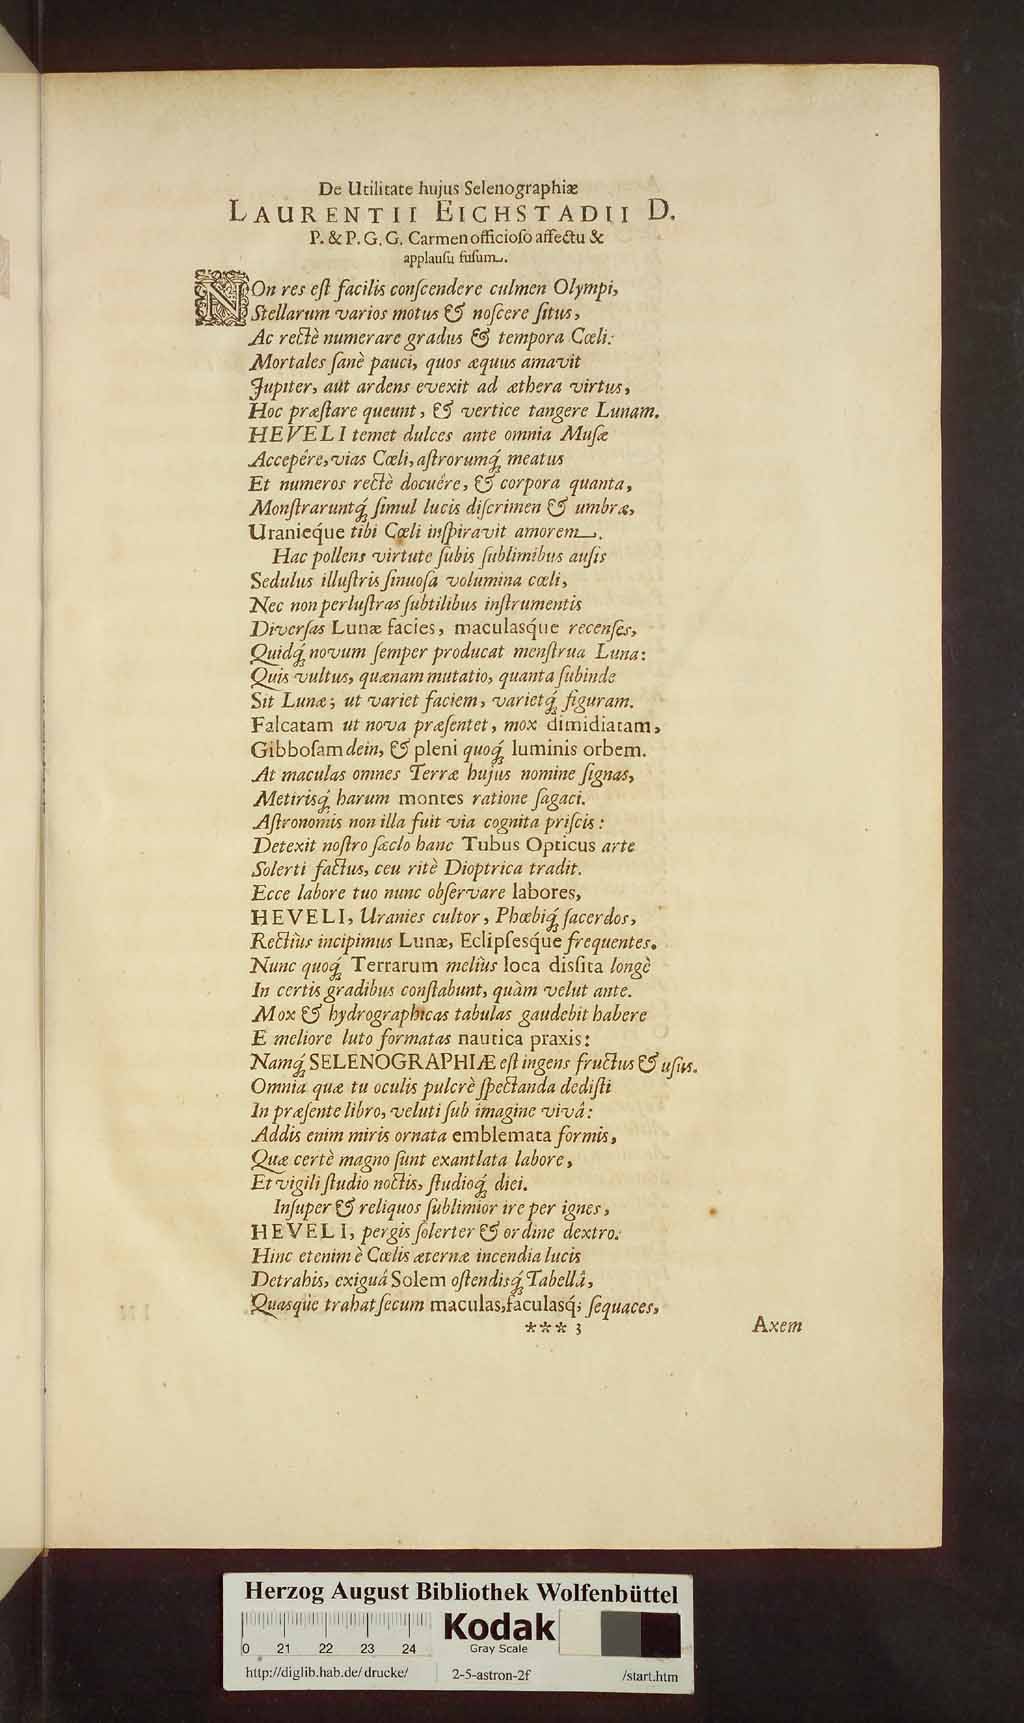 De Utilitate hujus Selenographiæ
LAURENTII EICHSTADII D.
P. & P. G. G. Carmen officioſo affectu &
applauſu fuſum.
NOn res eſt facilis conſcendere culmen Olympi,
Stellarum varios motus & noſcere ſitus,
Ac rectè numerare gradus & tempora Cœli:
Mortales ſanè pauci, quos æquus amavit
Jupiter, aut ardens evexit ad æthera virtus,
Hoc præſtare queunt, & vertice tangere Lunam.
HEVELI temet dulces ante omnia Muſæ
Accepêre, vias Cœli, aſtrorumq́; meatus
Et numeros rectè docuêre, & corpora quanta,
Monſtraruntq́; ſimul lucis diſcrimen & umbræ,
Uranieque tibi Cœli inſpiravit amorem.
Hac pollens virtute ſubis ſublimibus auſis
Sedulus illuſtris ſinuoſa volumina cœli,
Nec non perluſtras ſubtilibus inſtrumentis
Diverſas Lunæ facies, maculasq́ue recenſes,
Quidq́; novum ſemper producat menſtrua Luna:
Quis vultus, quænam mutatio, quanta ſubinde
Sit Lunæ; ut variet faciem, varietq́; figuram.
Falcatam ut nova præſentet, mox dimidiatam,
Gibboſam dein, & pleni quoq́; luminis orbem.
At maculas omnes Terræ hujus nomine ſignas,
Metirisq́; harum montes ratione ſagaci.
Aſtronomis non illa fuit via cognita priſcis:
Detexit noſtro ſæclo hanc Tubus Opticus arte
Solerti factus, ceu ritè Dioptrica tradit.
Ecce labore tuo nunc obſervare labores,
HEVELI, Uranies cultor, Phœbiq́; ſacerdos,
Rectiùs incipimus Lunæ, Eclipſesq́ue frequentes.
Nunc quoq́; Terrarum meliùs loca disſita longè
In certis gradibus conſtabunt, quàm velut ante.
Mox & hydrographicas tabulas gaudebit habere
E meliore luto formatas nautica praxis:
Namq́; SELENOGRAPHIÆ eſt ingens fructus & uſus.
Omnia quæ tu oculis pulcrè ſpectanda dediſti
In præſente libro, veluti ſub imagine vivâ:
Addis enim miris ornata emblemata formis,
Quæ certè magno ſunt exantlata labore,
Et vigili ſtudio noctis, ſtudioq́; diei.
Inſuper & reliquos ſublimior ire per ignes,
HEVELI, pergis ſolerter & ordine dextro:
Hinc etenim è Cœlis æternæ incendia lucis
Detrahis, exiguâ Solem oſtendisq́; Tabellâ,
Quasque trahat ſecum maculas, faculasq́; ſequaces,
*** 3 Axem
Herzog August Bibliothek Wolfenbüttel
Kodak
Gray Scale
0 21 22 23 24
http://diglib.hab.de/drucke/ 2-5-astron-2f /start.htm